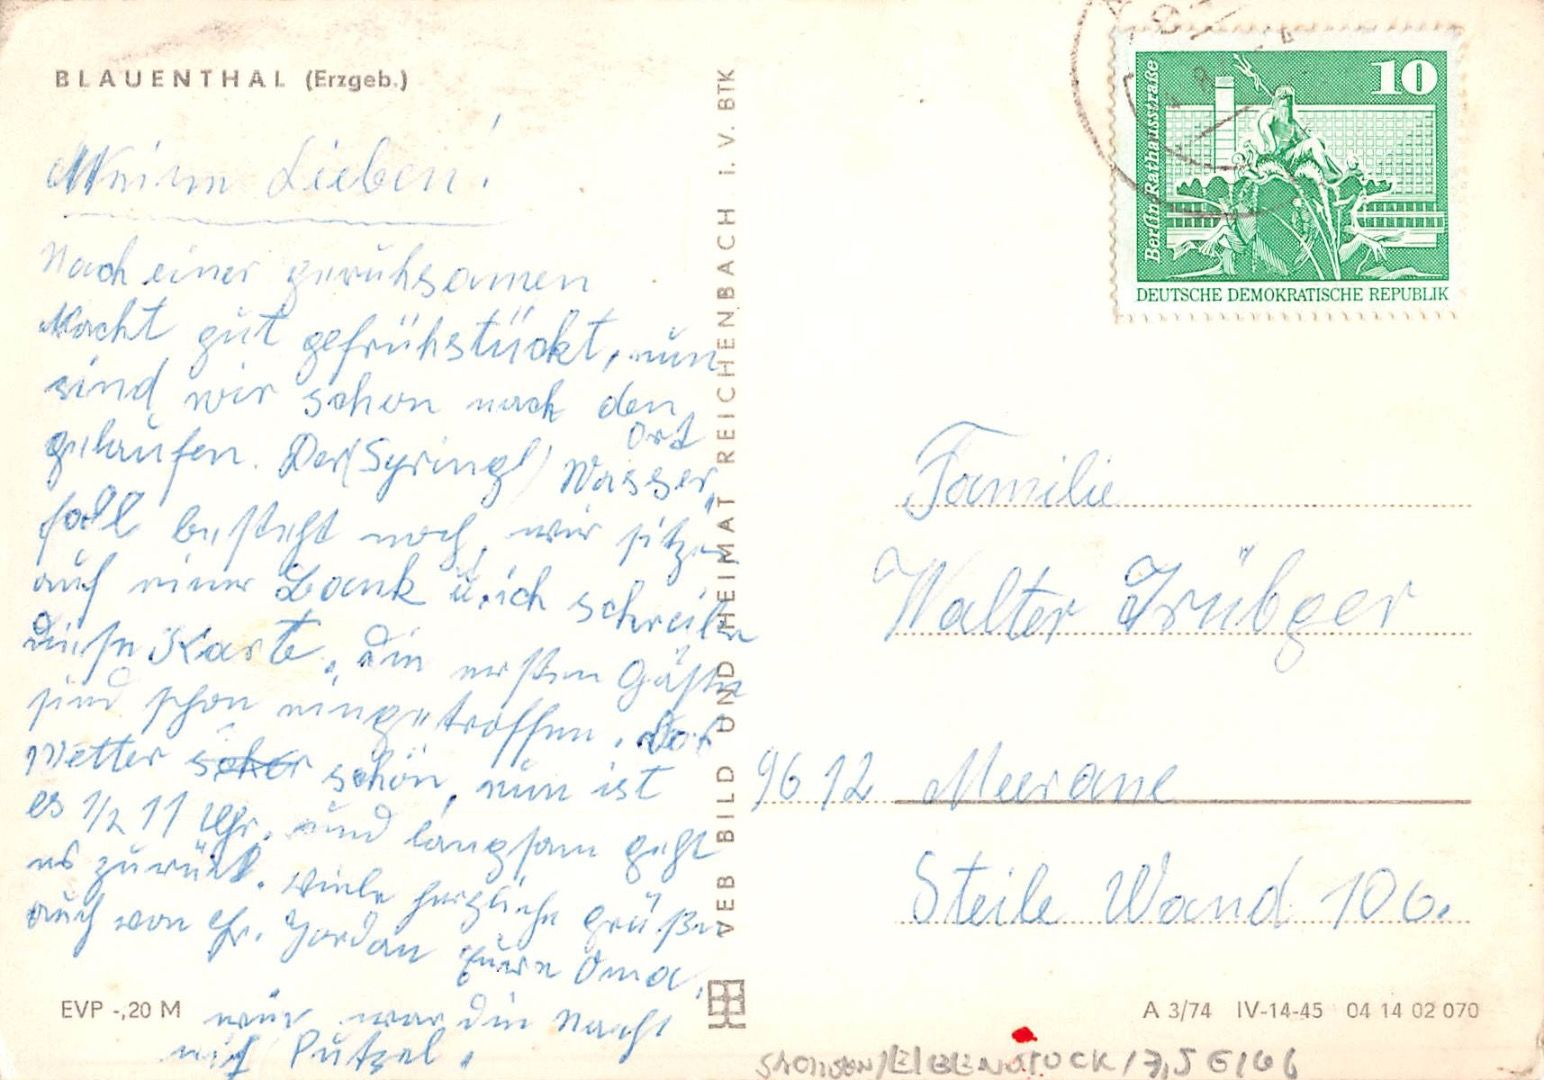 BLAUENTHAL (Erzgeb.)
Meine Lieben!
Nach einer geruhsamen
Nacht gut gefrühstückt, nun
sind wir schon nach den
Ort
gelaufen. Der (Syringl) Wasser
fall besteht noch, wir sitzen
auf einer Bank u. ich schreibe
diese Karte, die ersten Gäste
sind schon eingetroffen. Das
Wetter schön, nun ist
es 1/2 11 Uhr, und langsam geht
es zurück. Viele herzliche Grüße
auch von Fr. Jordan Eure Oma,
war die Nacht
mit Putzel.
EVP -,20 M
VEB BILD UND HEIMAT REICHENBACH i. V. BTK
10
Berlin, Rathausstraße
DEUTSCHE DEMOKRATISCHE REPUBLIK
Familie
Walter Trübger
9612 Meerane
Steile Wand 106.
A 3/74 IV-14-45 04 14 02 070
SACHSEN/EIBENSTOCK/